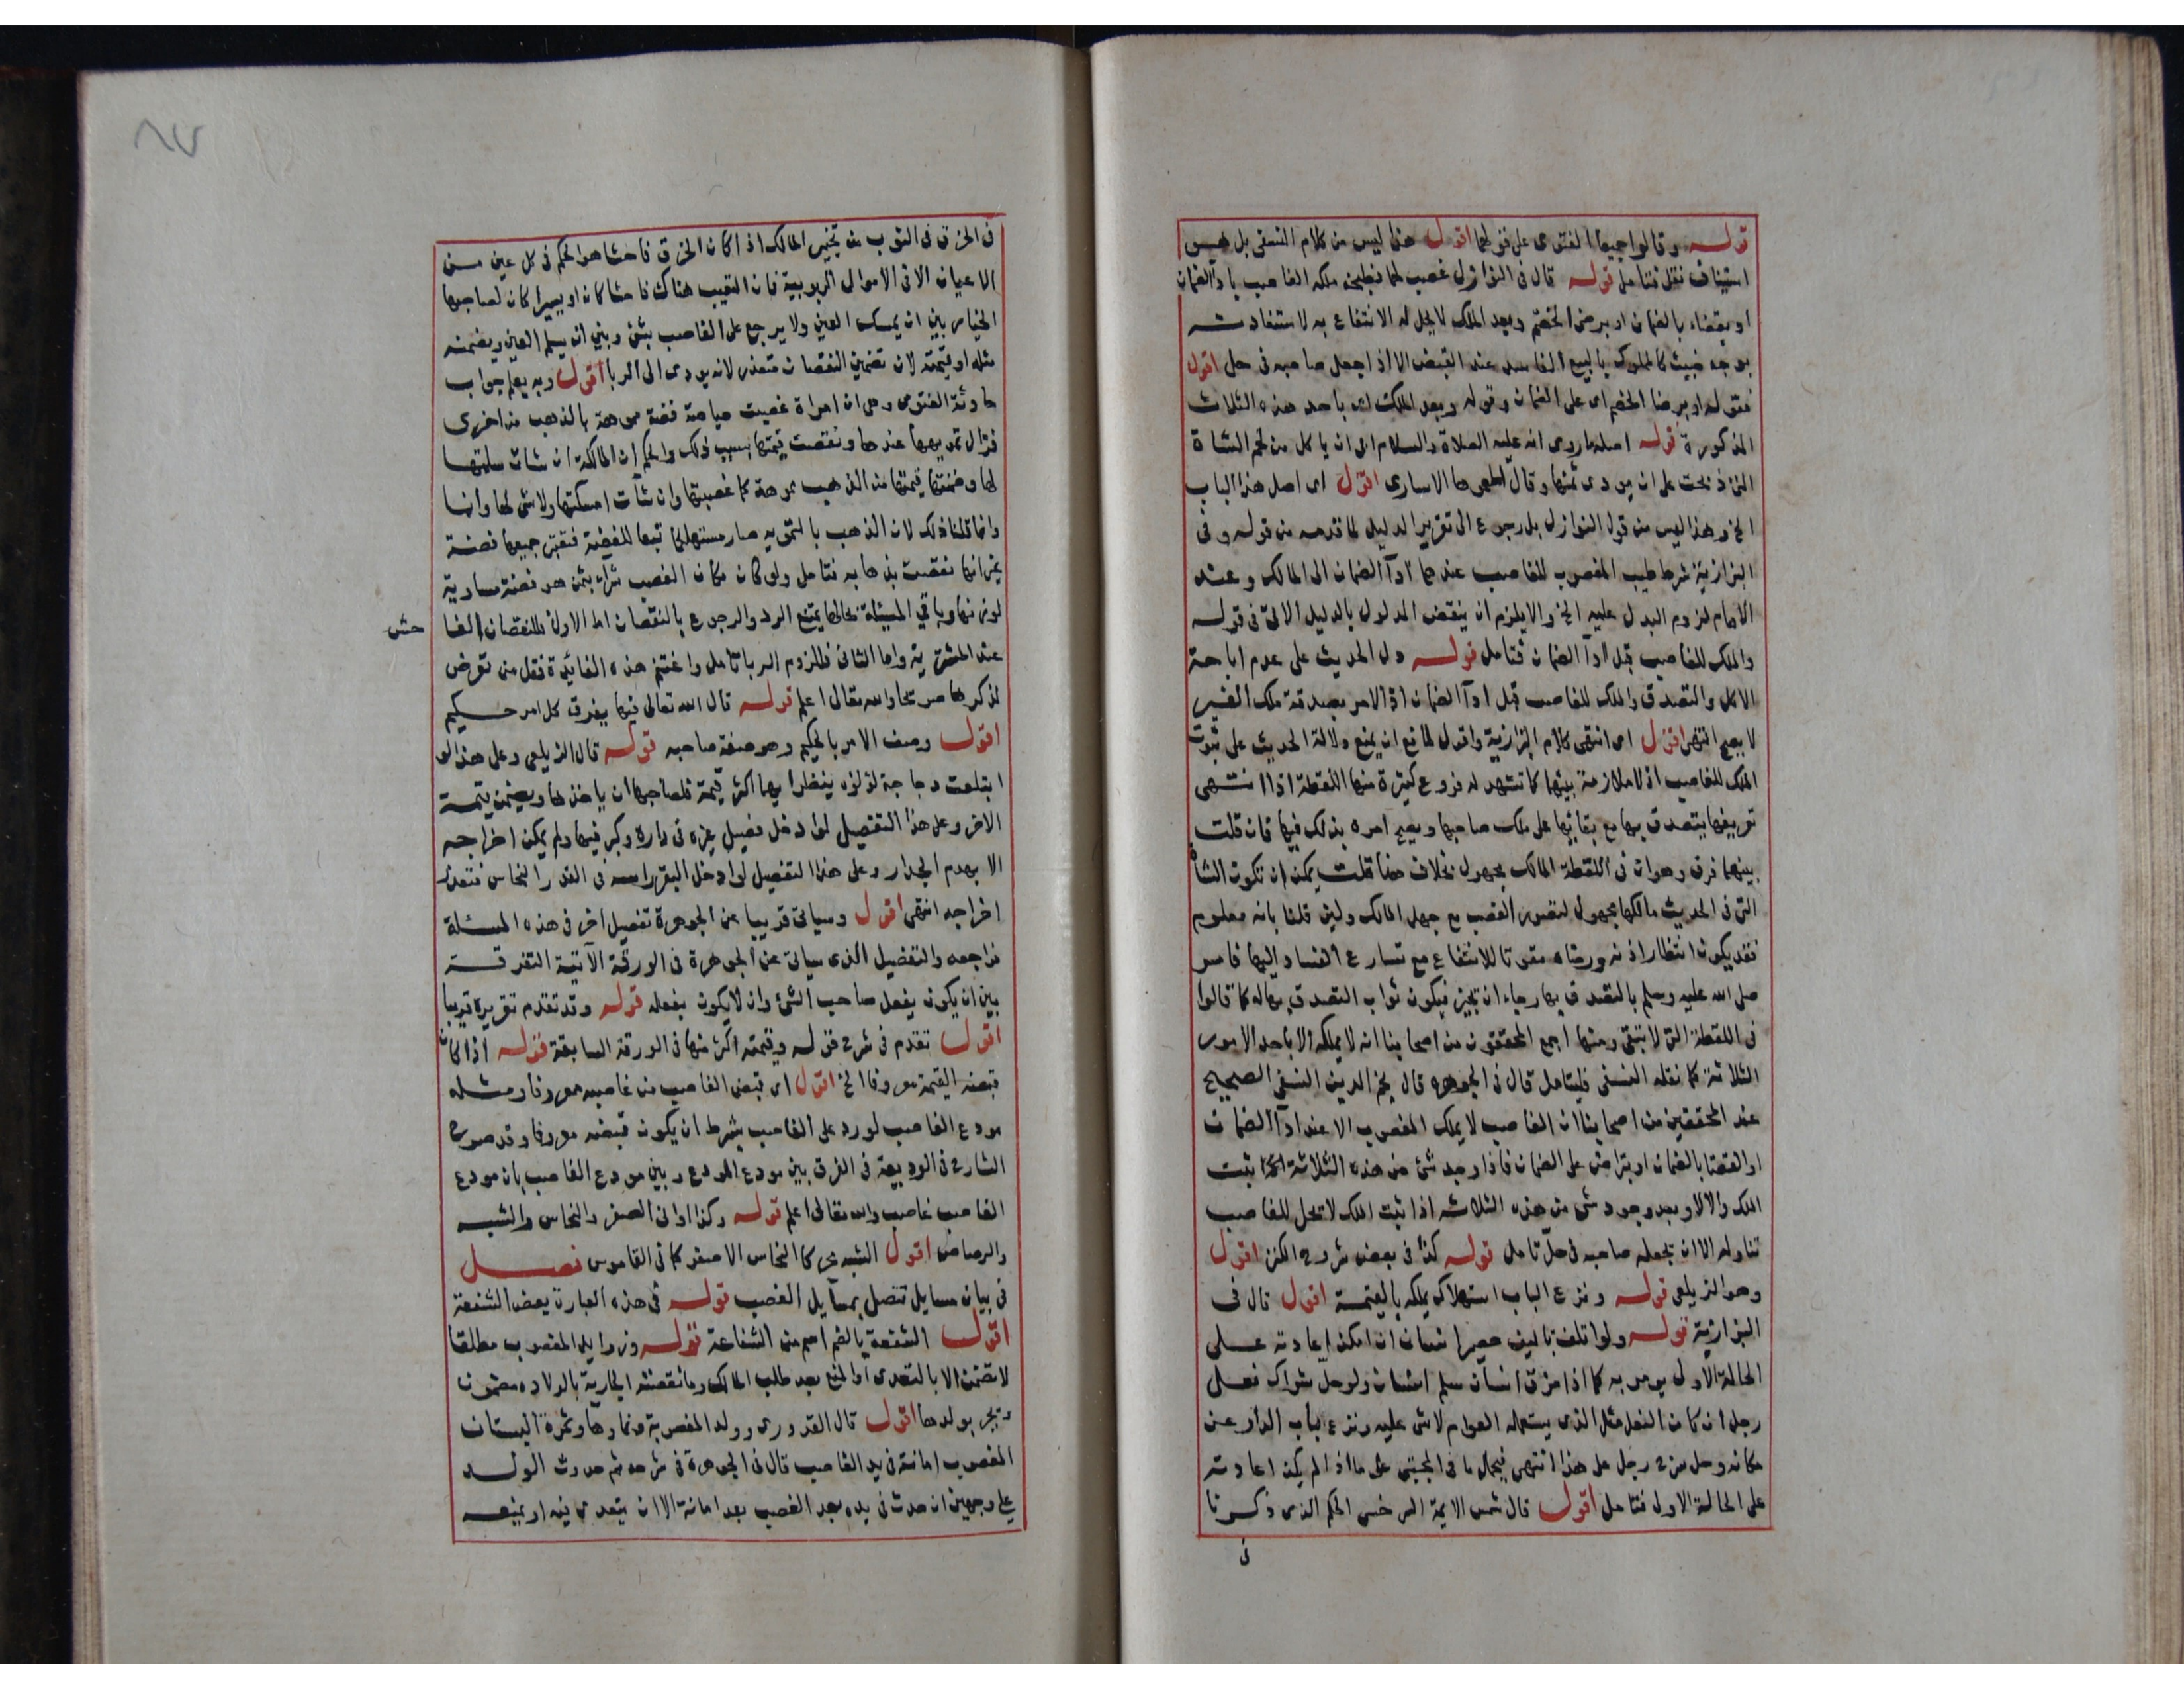 قوله وقالوا جميعا الفتوى على قولهما اقول هذا ليس من كلام النسفى بل هو
استيناف نقل فتامل قوله قال فى النوازل غصب لحما فطبخه ملكه الغاصب باداء الضمان
او بقضاء بالضمان او برضى الخصم وبعد الملك لا يحل له الانتفاع به لاستفادته
بوجه خبيث كالمملوك بالبيع الفاسد عند القبض الا اذا جعل صاحبه فى حل اقول
فقوله او برضا الخصم اى على الضمان وقوله وبعد الملك اى باحد هذه الثلاث
المذكورة قوله اصله ما روى انه عليه الصلاة والسلام ابى ان ياكل من لحم الشاة
التى ذبحت على ان يودى ثمنها وقال اطعموها الاسارى اقول اى اصل هذا الباب
الخ وهذا ليس من قول النوازل بل رجوع الى تقرير الدليل لما قدمه من قوله وفى
البزازية شرط طيب المغصوب للغاصب عندهما ادآ الضمان الى المالك وعند
الامام لزوم البدل عليه الخ والا يلزم ان ينقض المدلول بالدليل الاتى فى قوله
والملك للغاصب قبل ادآ الضمان فتامل قوله دل الحديث على عدم اباحة
الاكل والتصدق والملك للغاصب قبل ادآ الضمان اذ الامر بصدقة ملك الغير
لا يصح انتهى اقول اى انتهى كلام البزازية واقول لمانع ان يمنع دلالة الحديث على ثبوت
الملك للغاصب اذ لا ملازمة بينهما كما تشهد له فروع كثيرة منها اللقطة اذا انتهى
تعريفها يتصدق بها مع بقائها على ملك صاحبها ويصح امره بذلك فيها فان قلت
بينهما فرق وهو ان فى اللقطة المالك مجهول بخلاف هنا قلت يمكن ان تكون الشاة
التى فى الحديث مالكها مجهول لتصور الغصب مع جهل المالك ولئن قلنا بانه معلوم
فقد يكون انتظار اذنه ورضاه مفوتا للانتفاع مع تسارع الفساد اليها فامر
صلى الله عليه وسلم بالتصدق بها رجاء ان يجيز فيكون ثواب التصدق بها له كما قالوا
فى اللقطة التى لا تبقى ومنها اجمع المحققون من اصحابنا انه لا يملكه الا باحد الامور
الثلاثة كما نقله النسفى فليتامل قال فى الجوهره قال نجم الدين النسفى الصحيح
عند المحققين من اصحابنا ان الغاصب لا يملك المغصوب الا عند ادآ الضمان
او القضا بالضمان او بتراض على الضمان فاذا وجد شئ من هذه الثلاثة ثبت
الملك والا لا وبعد وجود شئ من هذه الثلاثه اذا ثبت الملك لا يحل للغاصب
تناوله الا ان يجعله صاحبه فى حل تامل قوله كذا فى بعض شروح الكنز اقول
وهو الزيلعى قوله ونزع الباب استهلاك يملكه بالقيمة اقول قال فى
البزازية قوله ولو اتلف تاليف حصير انسان ان امكن اعادته على
الحالة الاولى يومر به كما اذا مزق انسان سلم انسان ولو حل شراك نعل
رجل ان كان النعل مثل الذى يستعمله العوام لا شئ عليه ونزع باب الدار عن
مكانه وحل سرج رجل على هذا انتهى فيحمل ما فى المجتبى على ما اذا لم يمكن اعادته
على الحالة الاولى فتامل اقول قال شمس الايمة السرخسى الحكم الذى ذكرنا
فى
فى الخرق فى الثوب من تخيير المالك اذا كان الخرق فاحشا هو الحكم فى كل عين من
الاعيان الا فى الاموال الربوبية فان التعيب هناك فاحشا كان او يسيرا كان لصاحبها
الخيار بين ان يمسك العين ولا يرجع على الغاصب بشئ وبين ان يسلم العين ويضمنه
مثله او قيمته لان تضمين النقصان متعذر لانه يودى الى الربا اقول وبه يعلم جواب
حادثة الفتوى وهى ان امراة غصبت حياصة فضة مموهة بالذهب من اخرى
فزال تمويهها عندها ونقصت قيمتها بسبب ذلك والحكم ان المالكة ان شات سلمتها
لها وضمنتها قيمتها من الذهب مموهة كما غصبتها وان شآت امسكتها ولا شئ لها وانما
وانما قلنا ذلك لان الذهب بالتمويه صار مستهلكا تبعا للفضة فتعتبر جميعها فضة
غير انها نقصت بذهابه فتامل ولو كان مكان الغصب شراء بثمن هو فضة مساوية
لوزنها وباقى المسئلة بحالها يمتنع الرد والرجوع بالنقصان اما الاول فللنقصان الفا
حش
عند المشترى واما الثانى فللزوم الربا تامل واغتنم هذه الفائدة فقل من تعرض
لذكرها صريحا والله تعالى اعلم قوله قال الله تعالى فيها يفرق كل امر حكيم
اقول وصف الامر بالحكيم وهو صفة صاحبه قوله قال الزيلعى وعلى هذا لو
ابتلعت دجاجة لؤلؤه ينظر ايهما اكثر قيمة فلصاحبها ان ياخذها ويضمن قيمة
الاخر وعلى هذا التفصيل لو ادخل فصيل غيره فى داره وكبر فيها ولم يمكن اخراجه
الا بهدم الجدار وعلى هذا التفصيل لو ادخل البقر راسه فى القدر النحاس فتعذر
اخراجه انتهى اقول وسياتى قريبا عن الجوهرة تفصيل اخر فى هذه المسئلة
فراجعه والتفصيل الذى سياتى عن الجوهرة فى الورقة الآتية التفرقة
بين ان يكون بفعل صاحب الشئ وان لا يكون بفعله قوله وقد تقدم تقريره قريبا
اقول تقدم فى شرح قوله وقيمته اكثر منها فى الورقة السابقة قوله اذا كان
قبضه القيمة معروفا الخ اقول اى قبض الغاصب من غاصبه معروفا ومثله
مودع الغاصب لو رد على الغاصب بشرط ان يكون قبضه معروفا وقد صور
الشارح فى الوديعة فى الفرق بين مودع المودع وبين مودع الغاصب بان مودع
الغاصب غاصب والله تعالى اعلم قوله وكذا اوانى الصفر والنحاس والشبه
والرصاص اقول الشبه محركا النحاس الاصفر كما فى القاموس فصل
فى بيان مسايل تتصل بمسآيل الغصب قوله فى هذه العبارة بعض الشفعة
اقول الشفعة بالضم اسم من الشفاعة قوله وزوايد المغصوب مطلقا
لا تضمن الا بالتعدى او المنع بعد طلب المالك وما نقصته الجارية بالولاده مضمون
ويجبر بولدها اقول قال القدورى وولد المغصوبة ونماوها وثمرة البستان
المغصوب امانة فى يد الغاصب قال فى الجوهرة فى شرحه ثم حدوث الولد
على وجهين ان حدث فى يده بعد الغصب بعد امانة الا ان يتعدى فيه او يمنعه